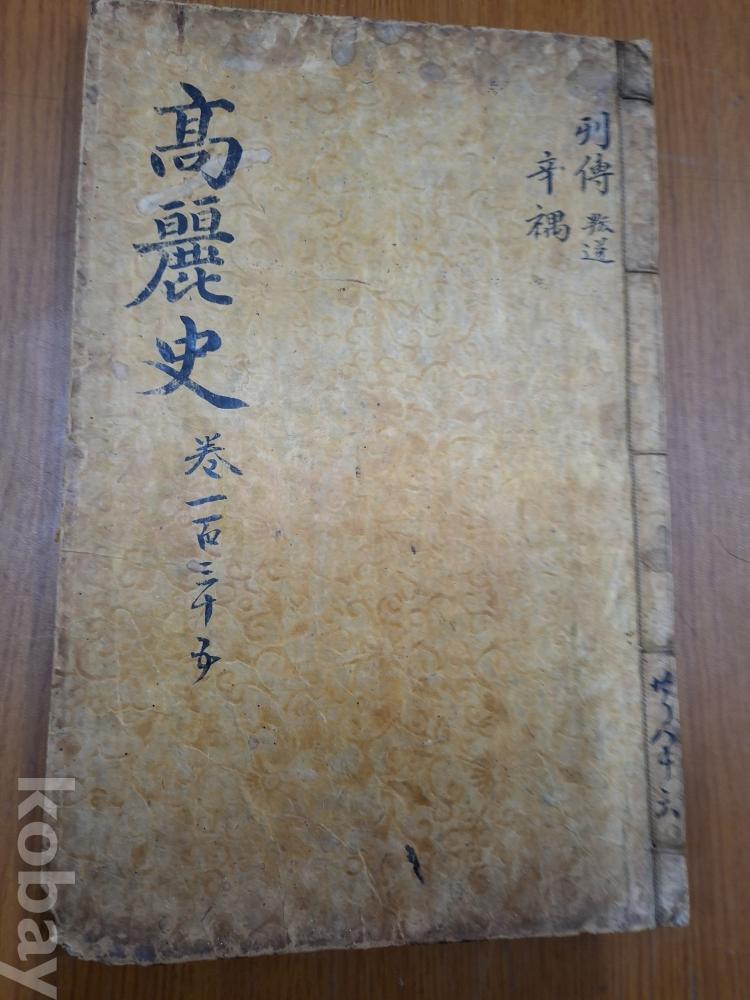 列傳 叛逆
辛禑
高麗史 卷一百三十五
共八十六
kobay